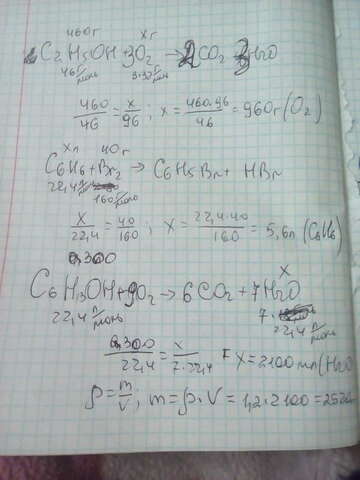 460г xг
C2H5OH + 3O2 → 2CO2 3H2O
46 г/моль 3·32 г/моль
460/46 = x/96 ; x = 460·96/46 = 960г (O2)
Xл 40г
C6H6 + Br2 → C6H5Br + HBr
22,4 л/моль 160 г/моль
X/22,4 = 40/160 ; X = 22,4·40/160 = 5,6л (C6H6)
0,300 X
C6H13OH + 9O2 → 6CO2 + 7H2O
22,4 л/моль 7· 22,4 л/моль
0,300/22,4 = x/7·22,4 X = 2100 мл (H2O
ρ = m/V ; m = ρ·V = 1,2·2100 = 252